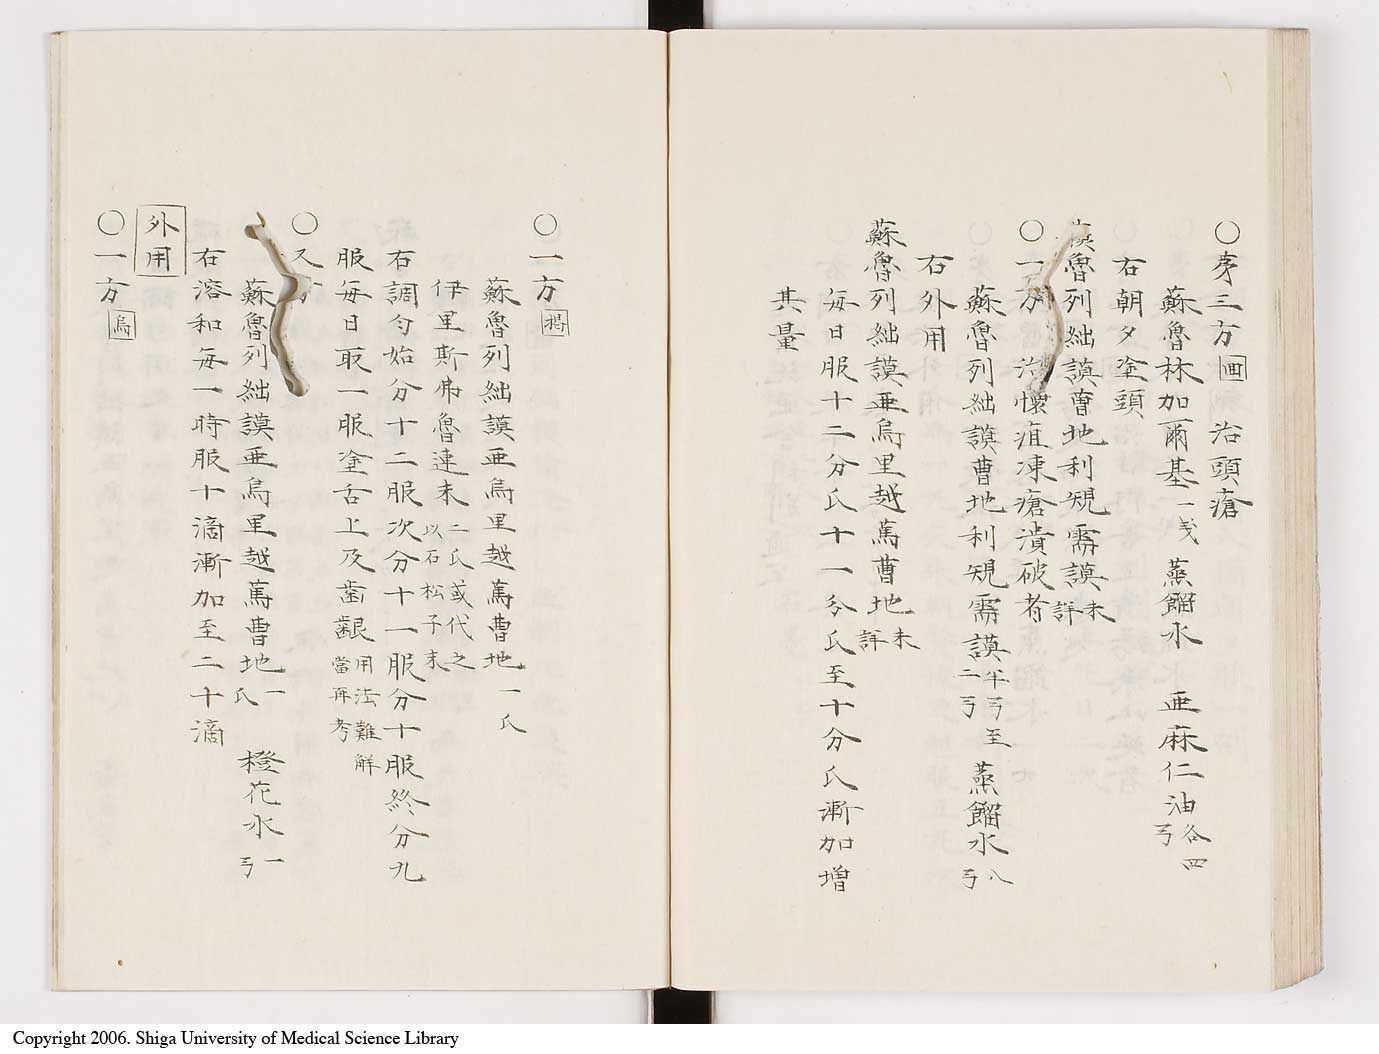 〇㐧三方 画 治頭瘡
蘇魯林加爾基 一戔 蒸餾水 亜麻仁油 各四弓
右朝夕塗頭
謨魯列絀謨曹地利規需謨 未詳
〇一方 治懐疽凍瘡潰破者
蘇魯列絀謨曹地利規需謨 半弓至二弓 蒸餾水 八弓
右外用
蘇魯列絀謨亜烏里越篤曹地 未詳
毎日服十二分氏十一分氏至十分氏漸加増
其量
〇一方
蘇魯列絀謨亜烏里越篤曹地 一氏
伊里斯弗魯連末 二氏或代之以石松子末
右調匀始分十二服次分十一服分十服終分九
服毎日取一服塗舌上及歯齦 用法難解當再考
〇又方
蘇魯列絀謨亜烏里越篤曹地 一氏 橙花水 一弓
右溶和毎一時服十滴漸加至二十滴
外用
〇一方 烏
Copyright 2006. Shiga University of Medical Science Library